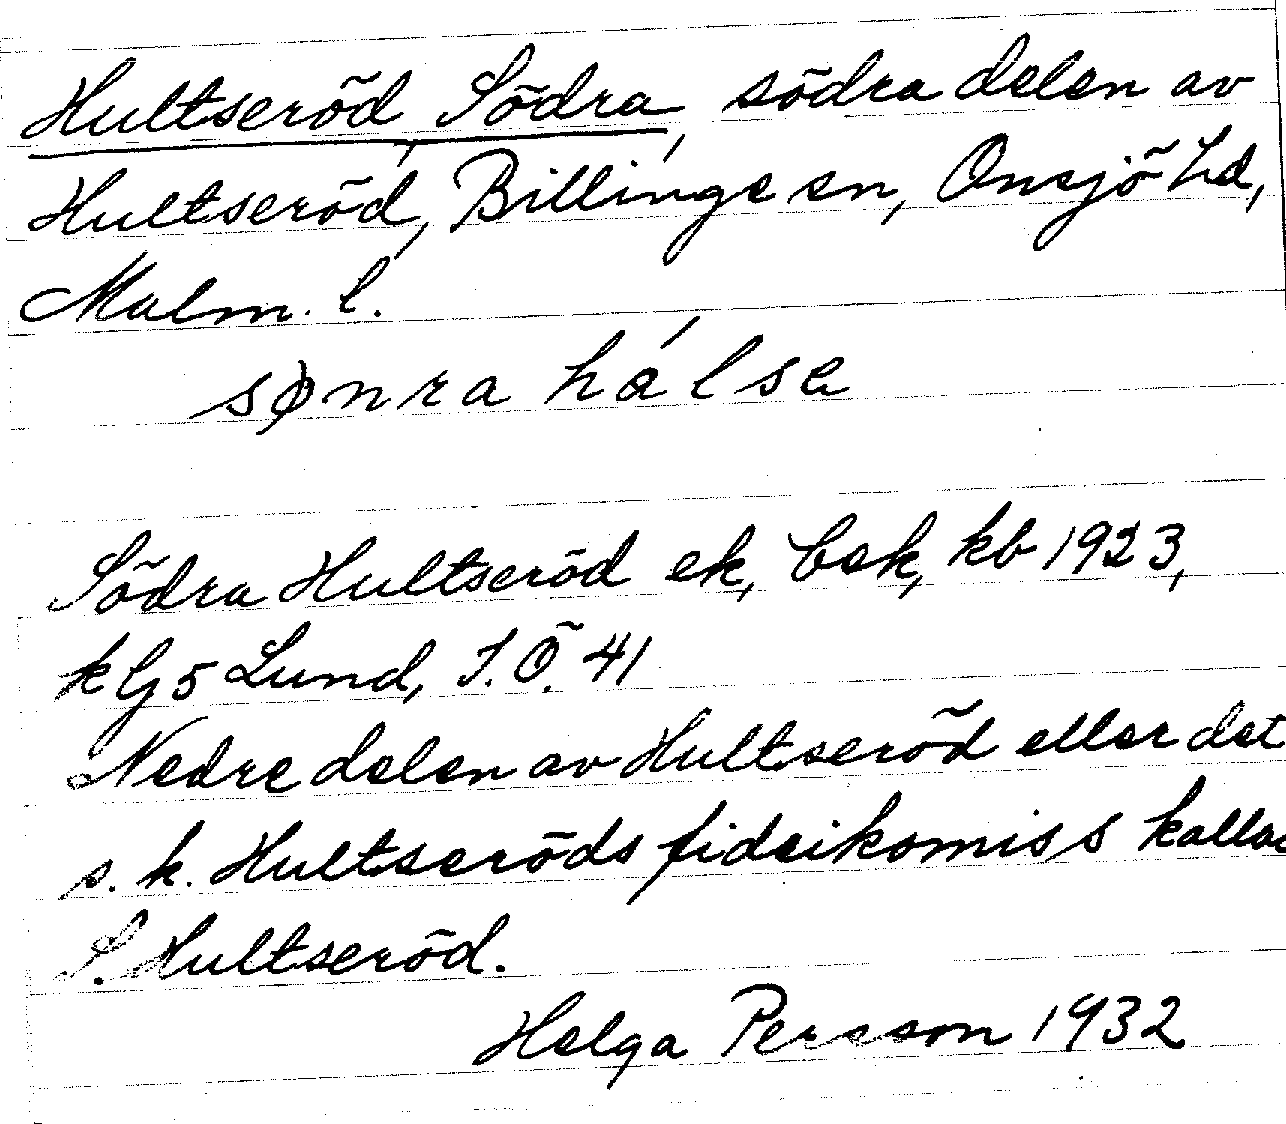 Hultseröd, Södra, södra delen av
Hultseröd, Billinge sn, Onsjö hd,
Malm. l.
sønra hálsa
Södra Hultseröd ek, bek, kb 1923,
k G5 Lund, J.Ö. 41
Nedre delen av Hultseröd eller det
s.k. Hultseröds fideikomiss kallas
S. Hultseröd.
Helga Persson 1932